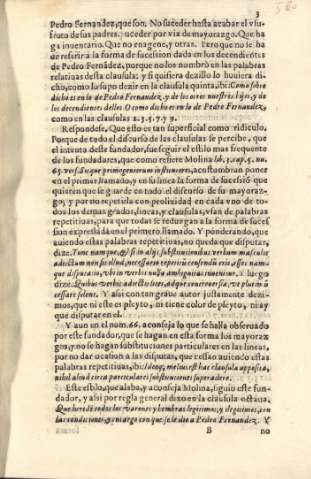 3
Pedro Fernandez, que son. No suceder hasta acabar el vsu-
fruto de sus padres. suceder por via de mayorazgo. Que ha
ga inventario. Que no enagene, y otras. Pero que no se ha
de referir a la forma de sucession dada en los decendientes
de Pedro Fernãdez, porque no los nombrò en las palabras
relatiuas desta clausula; y si quisiera dezillo lo huuiera di-
cho, como lo supo dezir en la clausula quinta, ibi: Como sobre
dicho es en lo de Pedro Fernandez, y de los otros nuestros hijos, y de
los decendientes dellos. O como dicho es en lo de Pedro Fernandez,
como en las clausulas 2. 3. 5. 7. y 9.
Respondese, Que esto es tan superficial como ridiculo.
Porque de todo el discurso de las clausulas se percibe, que
el intento deste fundador, fue seguir el estilo mas frequente
de los fundadores, que como refiere Molina lib. 1. cap. 5. nu.
65. vers. Quando primogenium instituerent, acostumbran poner
en el primer llamado, y en su linea la forma de sucessiõ que
quieren que se guarde en todo el discurso de su mayoraz-
go; y por no repetirla con prolixidad en cada vno de to-
dos los demas grados, lineas, y clausulas, vsan de palabras
repetitiuas, para que todas se reduzgan a la forma de suces
sion expressada en el primero llamado. Y ponderando, que
auiendo estas palabras repetitiuas, no queda que disputar,
dize: Tunc namque, & si in alijs substituendis verbum masculus
adiectum non sit illud, necessario repetitũ censendũ erit, esset nam-
que disputatio, vbi in verbis nulla ambiguitas inuenitur. Y luego
dize: Quibus verbis adiectis lites, & que controuersia, vt plurimũ
cessare solent. Y assi con tan graue autor justamente dezi-
mos, que ni este es pleyto, ni tiene color de pleyto, ni ay
que disputar en el.
Y aun en el num. 66. aconseja lo que se halla obseruado
por este fundador, que se hagan en esta forma los mayoraz-
gos, y no se hagan substituciones particulares en las lineas,
por no dar ocasion a las disputas, que cessan auiendo estas
palabras repetitiuas, ibi: Ideoq; melius est hac clausula apposita,
nihil aliud circa particulares substitutiones superaddere.
Este estilo, que alaba, y aconseja Molina, siguio este fun-
dador, y assi por regla general dixo en la clausula octaua,
Que heredẽ todos los varones y hembras legitimos, y ilegitimos, con
las condiciones, y encargo con que se le dio a Pedro Fernandez. Y
B no